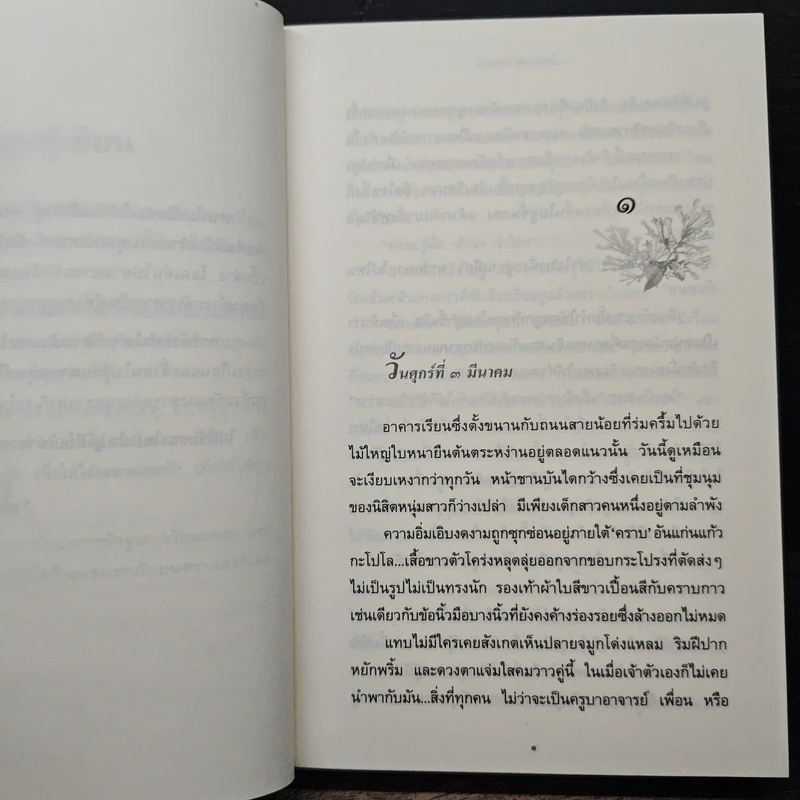 ๑
วันศุกร์ที่ ๓ มีนาคม
อาคารเรียนซึ่งตั้งขนานกับถนนสายน้อยที่ร่มครึ้มไปด้วย
ไม้ใหญ่ใบหนายืนต้นตระหง่านอยู่ตลอดแนวนั้น วันนี้ดูเหมือน
จะเงียบเหงากว่าทุกวัน หน้าชานบันไดกว้างซึ่งเคยเป็นที่ชุมนุม
ของนิสิตหนุ่มสาวก็ว่างเปล่า มีเพียงเด็กสาวคนหนึ่งอยู่ตามลำพัง
ความอิ่มเอิบงดงามถูกซุกซ่อนอยู่ภายใต้ ‘คราบ’ อันแก่นแก้ว
กะโปโล...เสื้อขาวตัวโคร่งหลุดลุ่ยออกจากขอบกระโปรงที่ตัดส่งๆ
ไม่เป็นรูปไม่เป็นทรงนัก รองเท้าผ้าใบสีขาวเปื้อนสีกับคราบกาว
เช่นเดียวกับข้อนิ้วมือบางนิ้วที่ยังคงค้างร่องรอยซึ่งล้างออกไม่หมด
แทบไม่มีใครเคยสังเกตเห็นปลายจมูกโด่งแหลม ริมฝีปาก
หยักพริ้ม และดวงตาแจ่มใสคมวาวคู่นี้ ในเมื่อเจ้าตัวเองก็ไม่เคย
นำพากับมัน...สิ่งที่ทุกคน ไม่ว่าจะเป็นครูบาอาจารย์ เพื่อน หรือ